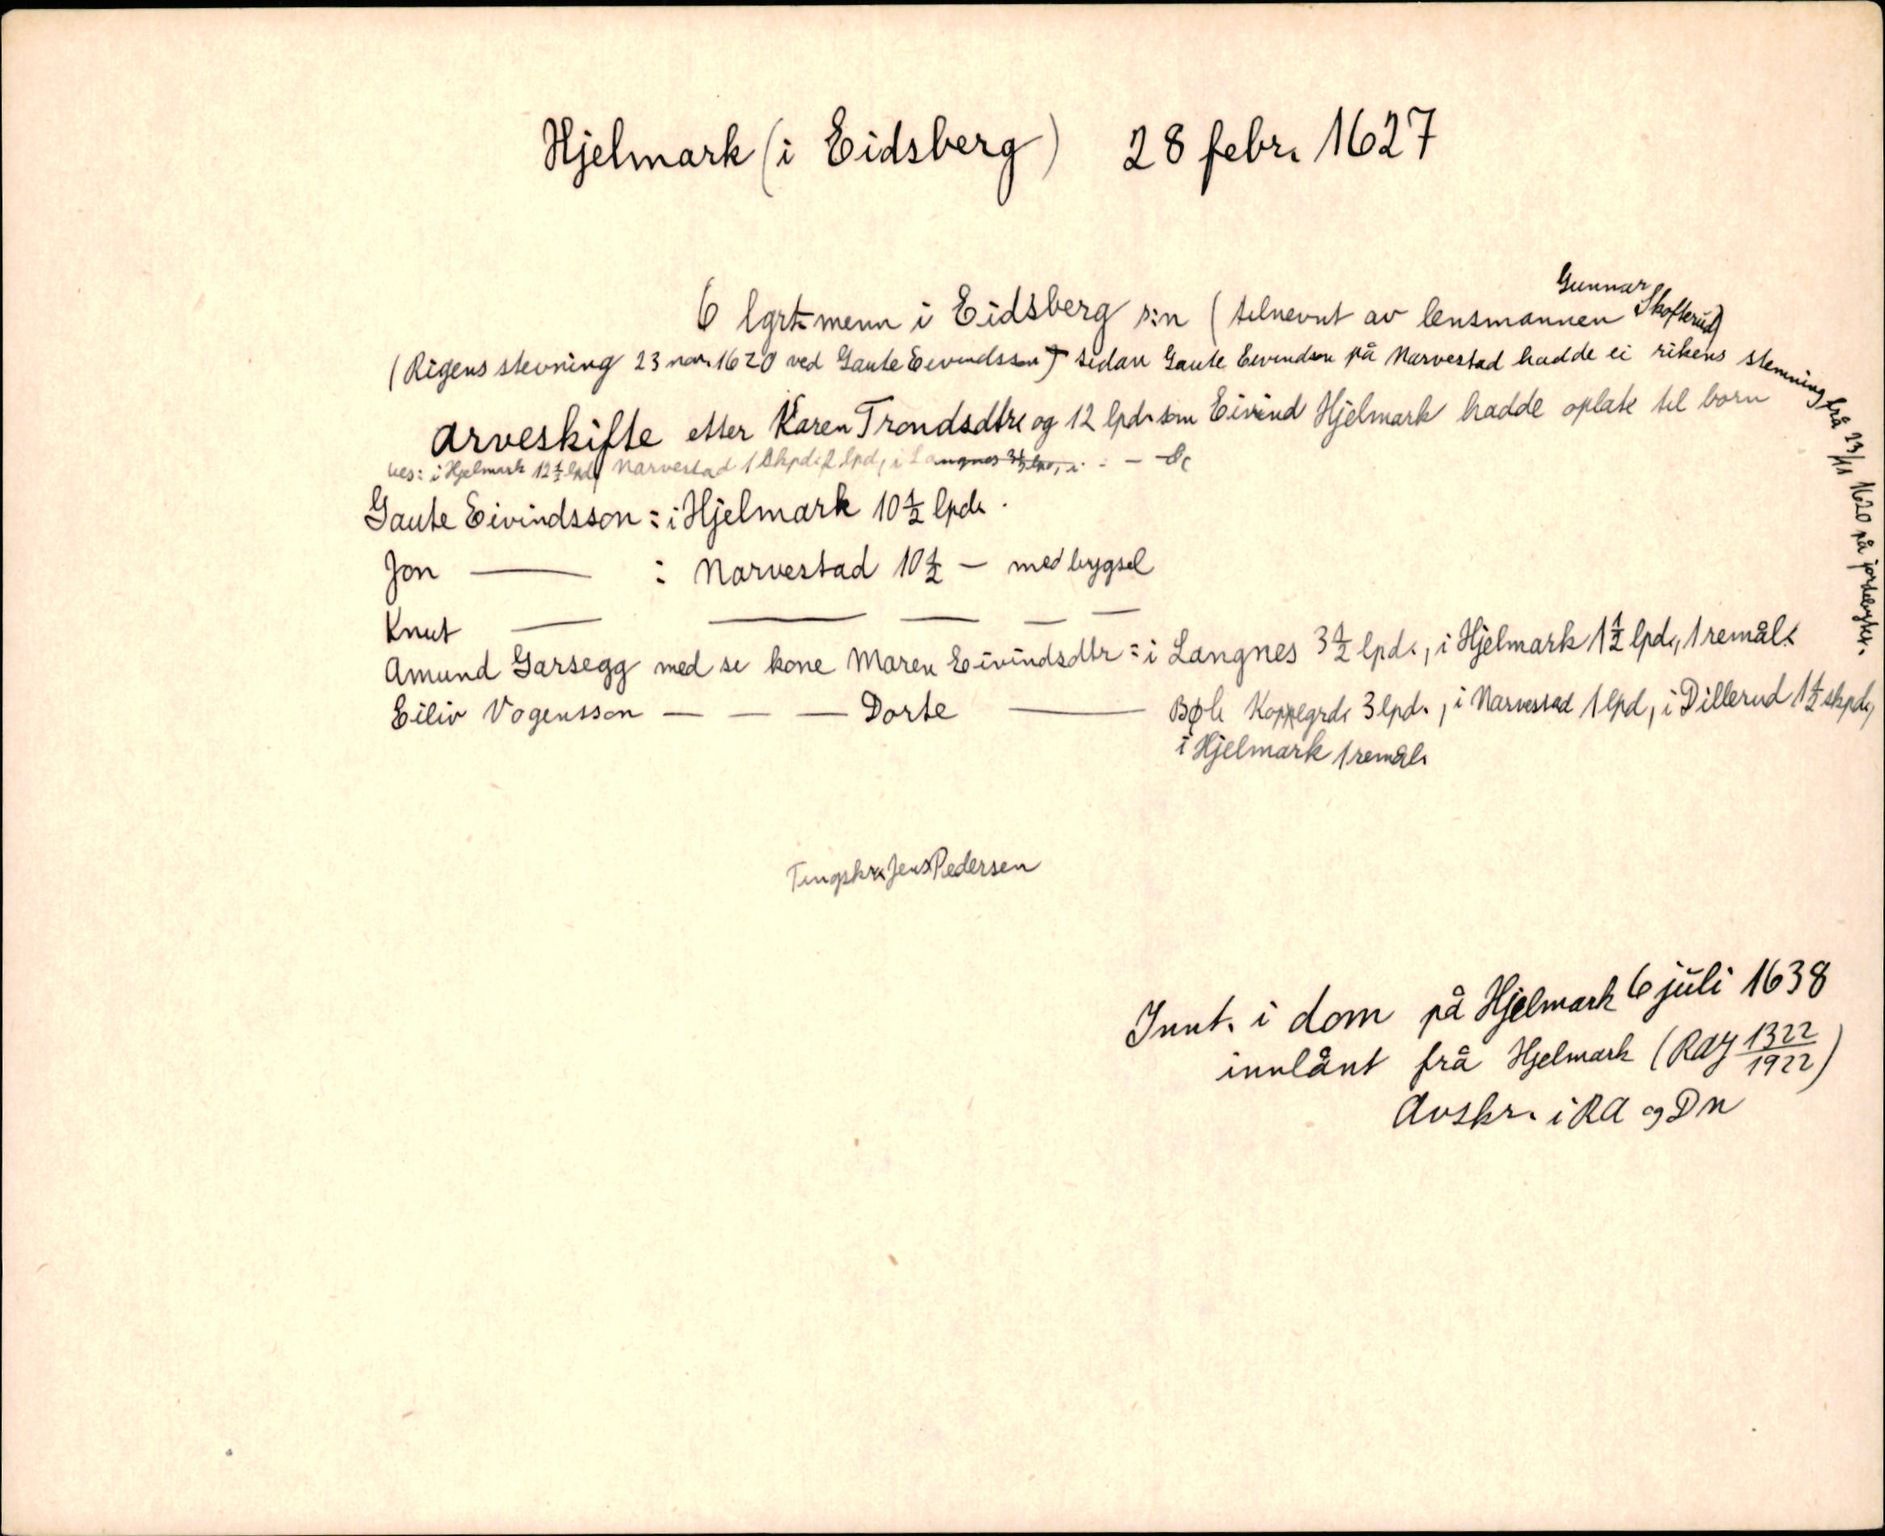 Hjelmark (i Eidsberg) 28 febr. 1627
6 lgrt.menn i Eidsberg s:n (tilnevnt av lensmannen Gunnar Skofterud)
(Rigens stevning 23 nov. 1620 ved Gaute Eivindsson) sidan Gaute Eivindson på Narvestad hadde ei rikens stemning frå 23/11 1620 på jordebyte.
arveskifte etter Karen Trondsdtr. og 12 lpd. som Eivind Hjelmark hadde oplate til born
i Hjelmark 12 1/2 lpd, Narvestad 1 skpd. 2 lpd, i Langnes 3 1/2 lpd, i
Gaute Eivindsson : i Hjelmark 10 1/2 lpd.
Jon — : Narvestad 10 1/2 — med bygsel
Knut — — — — —
Amund Garsegg med si kone Maren Eivindsdtr : i Langnes 3 1/2 lpd., i Hjelmark 1 1/2 lpd., 1 remål.
Eiliv Vogensson — — — Dorte — Bøli Koppegrd. 3 lpd., i Narvestad 1 lpd, i Dillerud 1 1/2 skpd,
i Hjelmark 1 remål.
Tingskr. Jens Pedersen
Innt. i dom på Hjelmark 6 juli 1638
innlånt frå Hjelmark (RAJ 1322/1922)
Avskr. i RA og DN